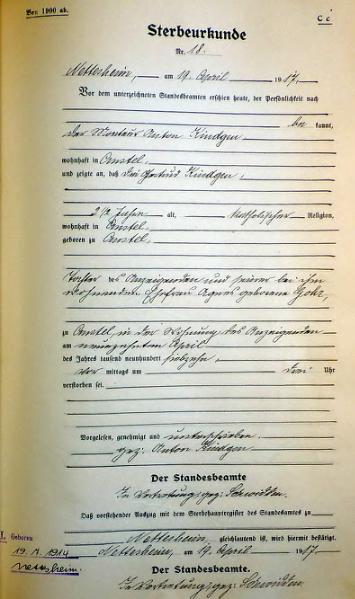 Von 1900 ab.
C c
Sterbeurkunde
Nr. 18.
Nettersheim, am 19. April 1917.
Vor dem unterzeichneten Standesbeamten erschien heute, der Persönlichkeit nach
be kannt,
der Monteur Anton Kindgen,
wohnhaft in
und zeigte an, daß die Gertrud Kindgen,
2 1/2 Jahre alt, katholischer Religion,
wohnhaft in
geboren zu
Tochter des Anzeigenden und seiner bei ihm
wohnenden Ehefrau Agnes geborene
zu in der Wohnung des Anzeigenden
am neunzehnten April
des Jahres tausend neunhundert siebzehn,
vor mittags um drei Uhr
verstorben sei.
Vorgelesen, genehmigt und unterschrieben.
gez: Anton Kindgen.
Der Standesbeamte
In Vertretung gez:
Daß vorstehender Auszug mit dem Sterbehauptregister des Standesamtes zu
Nettersheim, gleichlautend ist, wird hiermit bestätigt.
Nettersheim, am 19. April 1917.
Der Standesbeamte.
In Vertretung gez:
geboren
1914